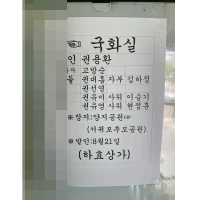 국화실
인 권용환
고맹순
권배흠 자부 김하정
권선영
권유미 사위 이승기
권유영 사위 현정훈
※장지:양지공원
(서귀포추모공원)
※발인:8월21일
(하효상가)